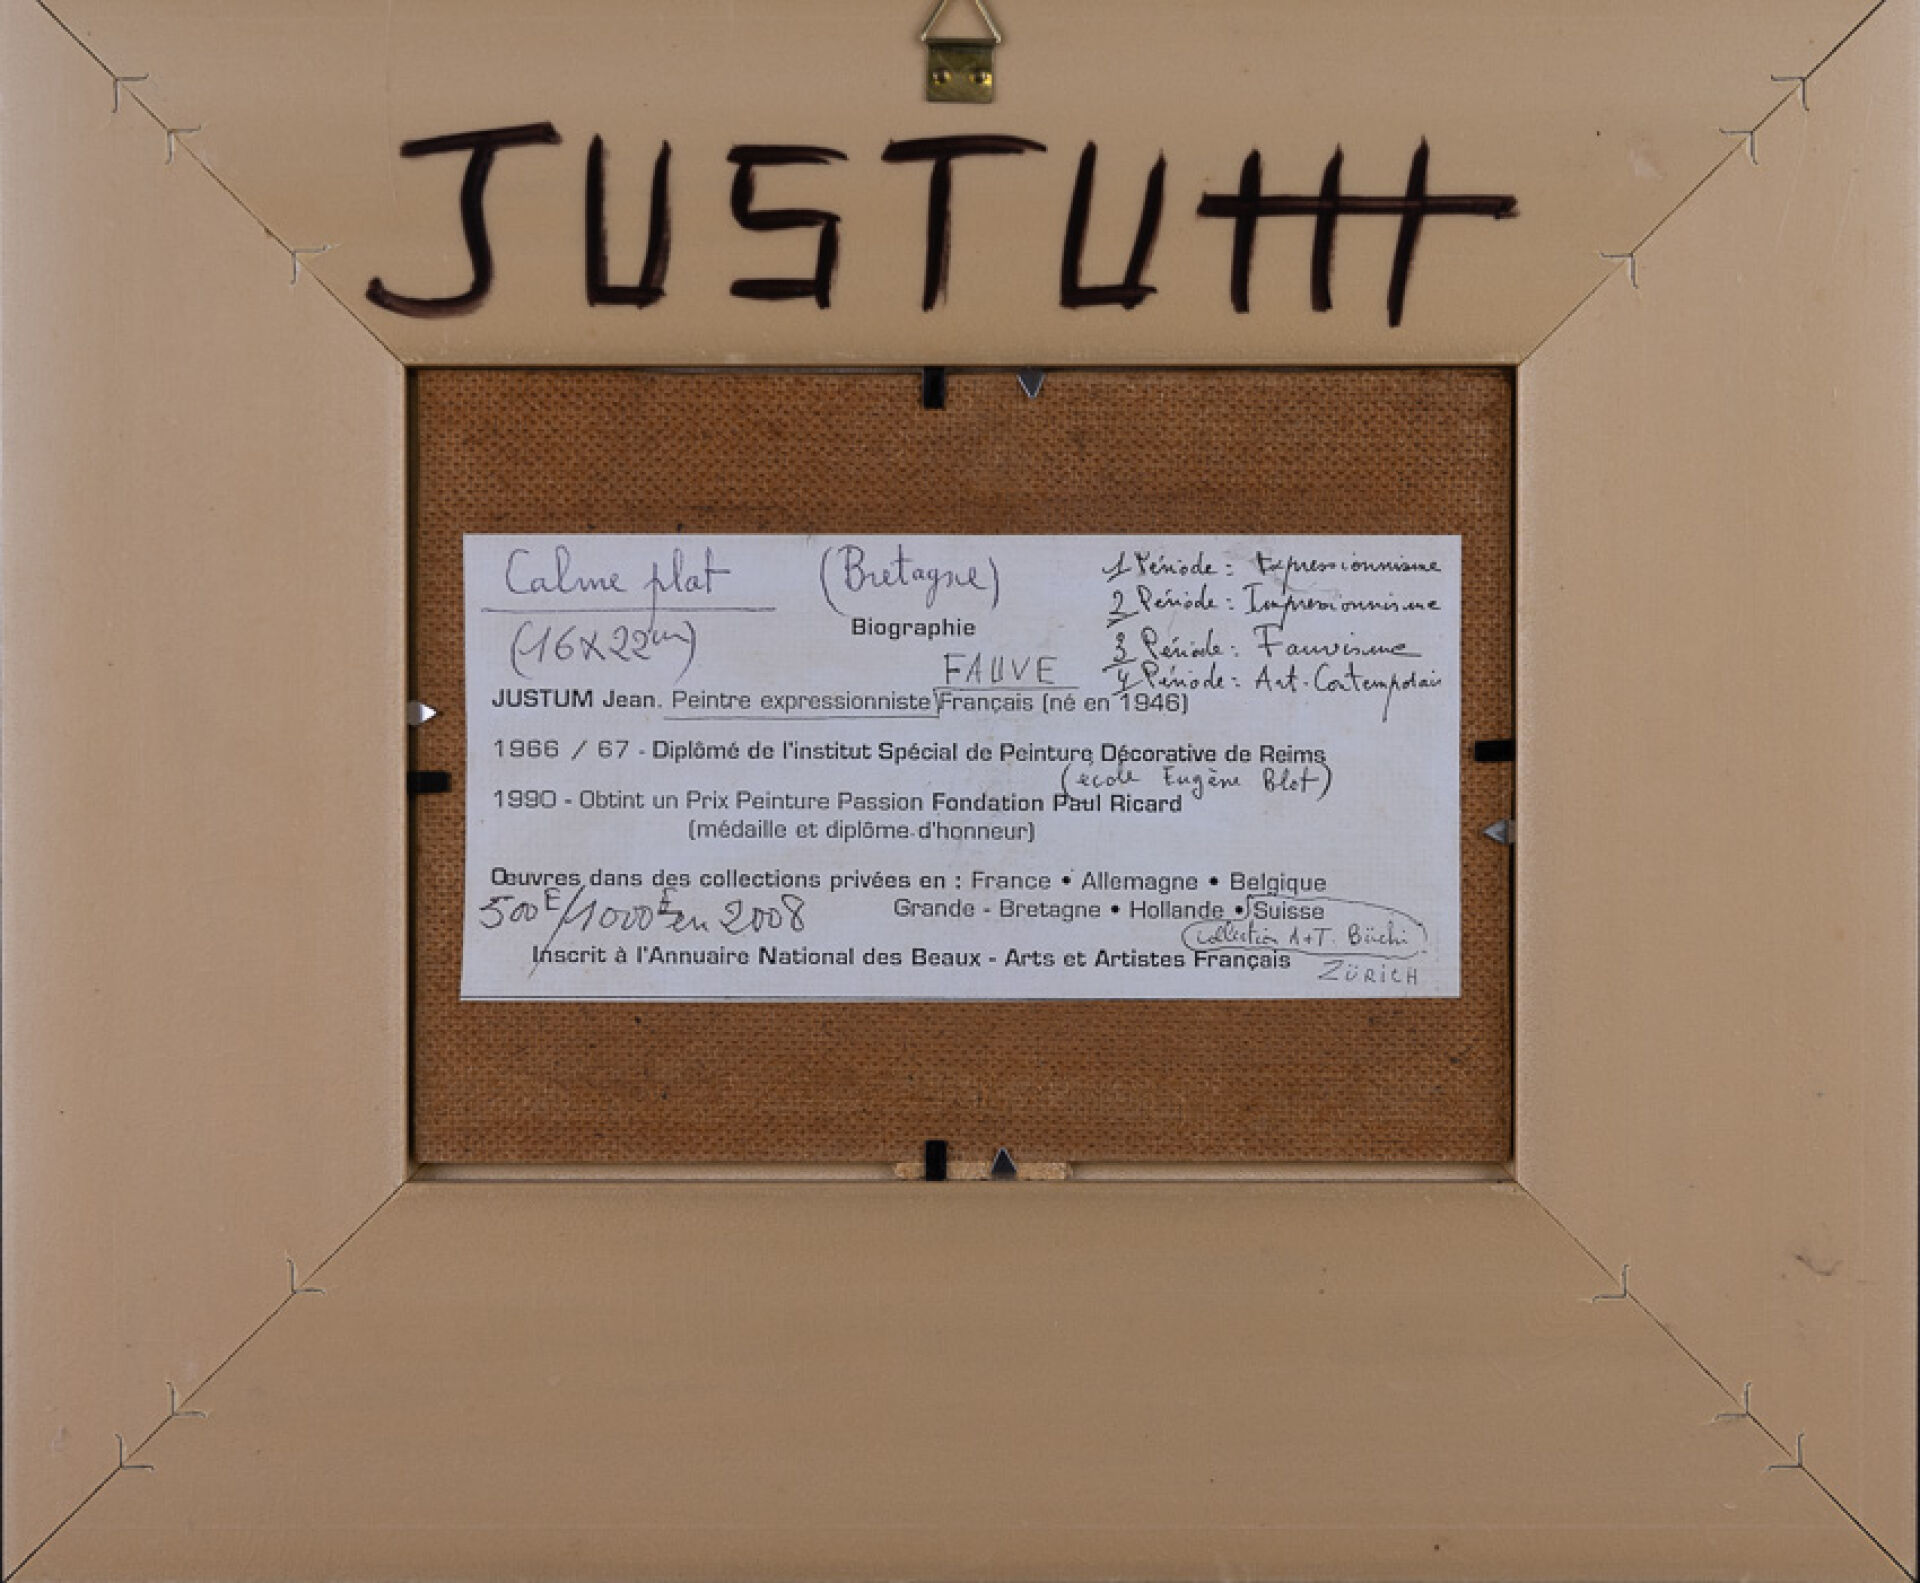 JUSTUM
Calme plat (Bretagne)
(16x22cm)
1 Période : Expressionnisme
2 Période : Impressionnisme
3 Période : Fauvisme
4 Période : Art-Contemporain
Biographie
FAUVE
JUSTUM Jean. Peintre expressionniste Français (né en 1946)
1966 / 67 - Diplômé de l'institut Spécial de Peinture Décorative de Reims
(école Eugène Blot)
1990 - Obtint un Prix Peinture Passion Fondation Paul Ricard
(médaille et diplôme d'honneur)
Œuvres dans des collections privées en : France • Allemagne • Belgique
Grande - Bretagne • Hollande • Suisse
500E/1000E en 2008
(collection A+T. Büchi)
ZÜRICH
Inscrit à l'Annuaire National des Beaux - Arts et Artistes Français